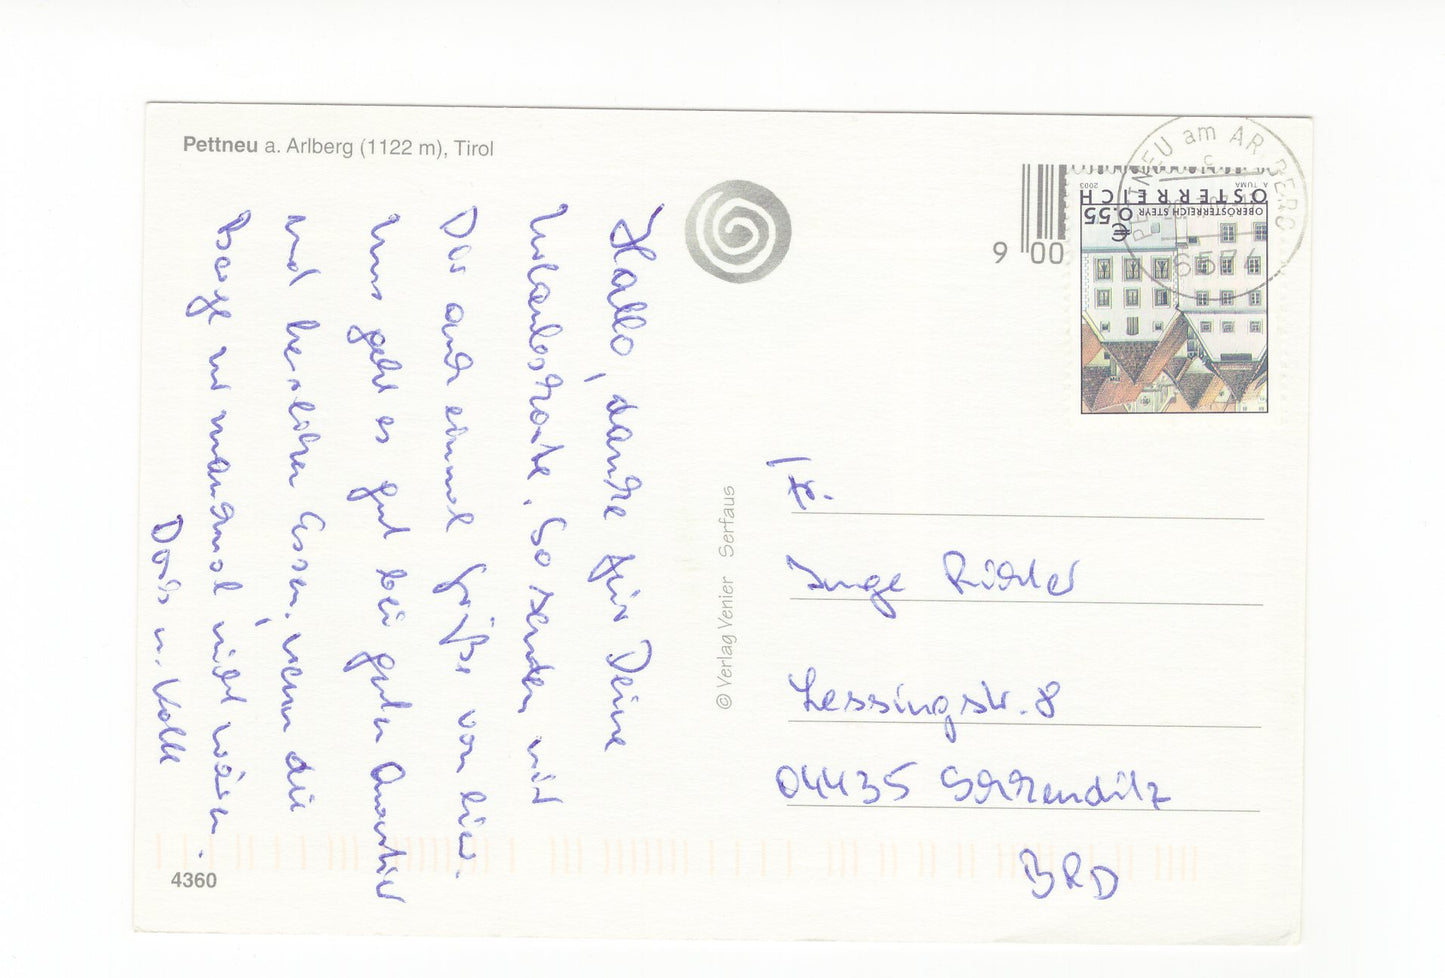 Pettneu a. Arlberg (1122 m), Tirol
Hallo, danke für Deine
Urlaubskarte. So senden wir
Dir auch einmal Grüße von hier.
Uns geht es gut bei guten Quartier
und herrlichen Essen, wenn die
Berge nur manchmal nicht wären.
Doris u. Kalle
© Verlag Venier Serfaus
4360
9 00
PETTNEU am ARLBERG
c
6574
A. TUMA
2003
ÖSTERREICH
OBERÖSTERREICH STEYR
€ 0.55
Fr.
Inge Richter
Lessingstr. 8
04435 Schkeuditz
BRD